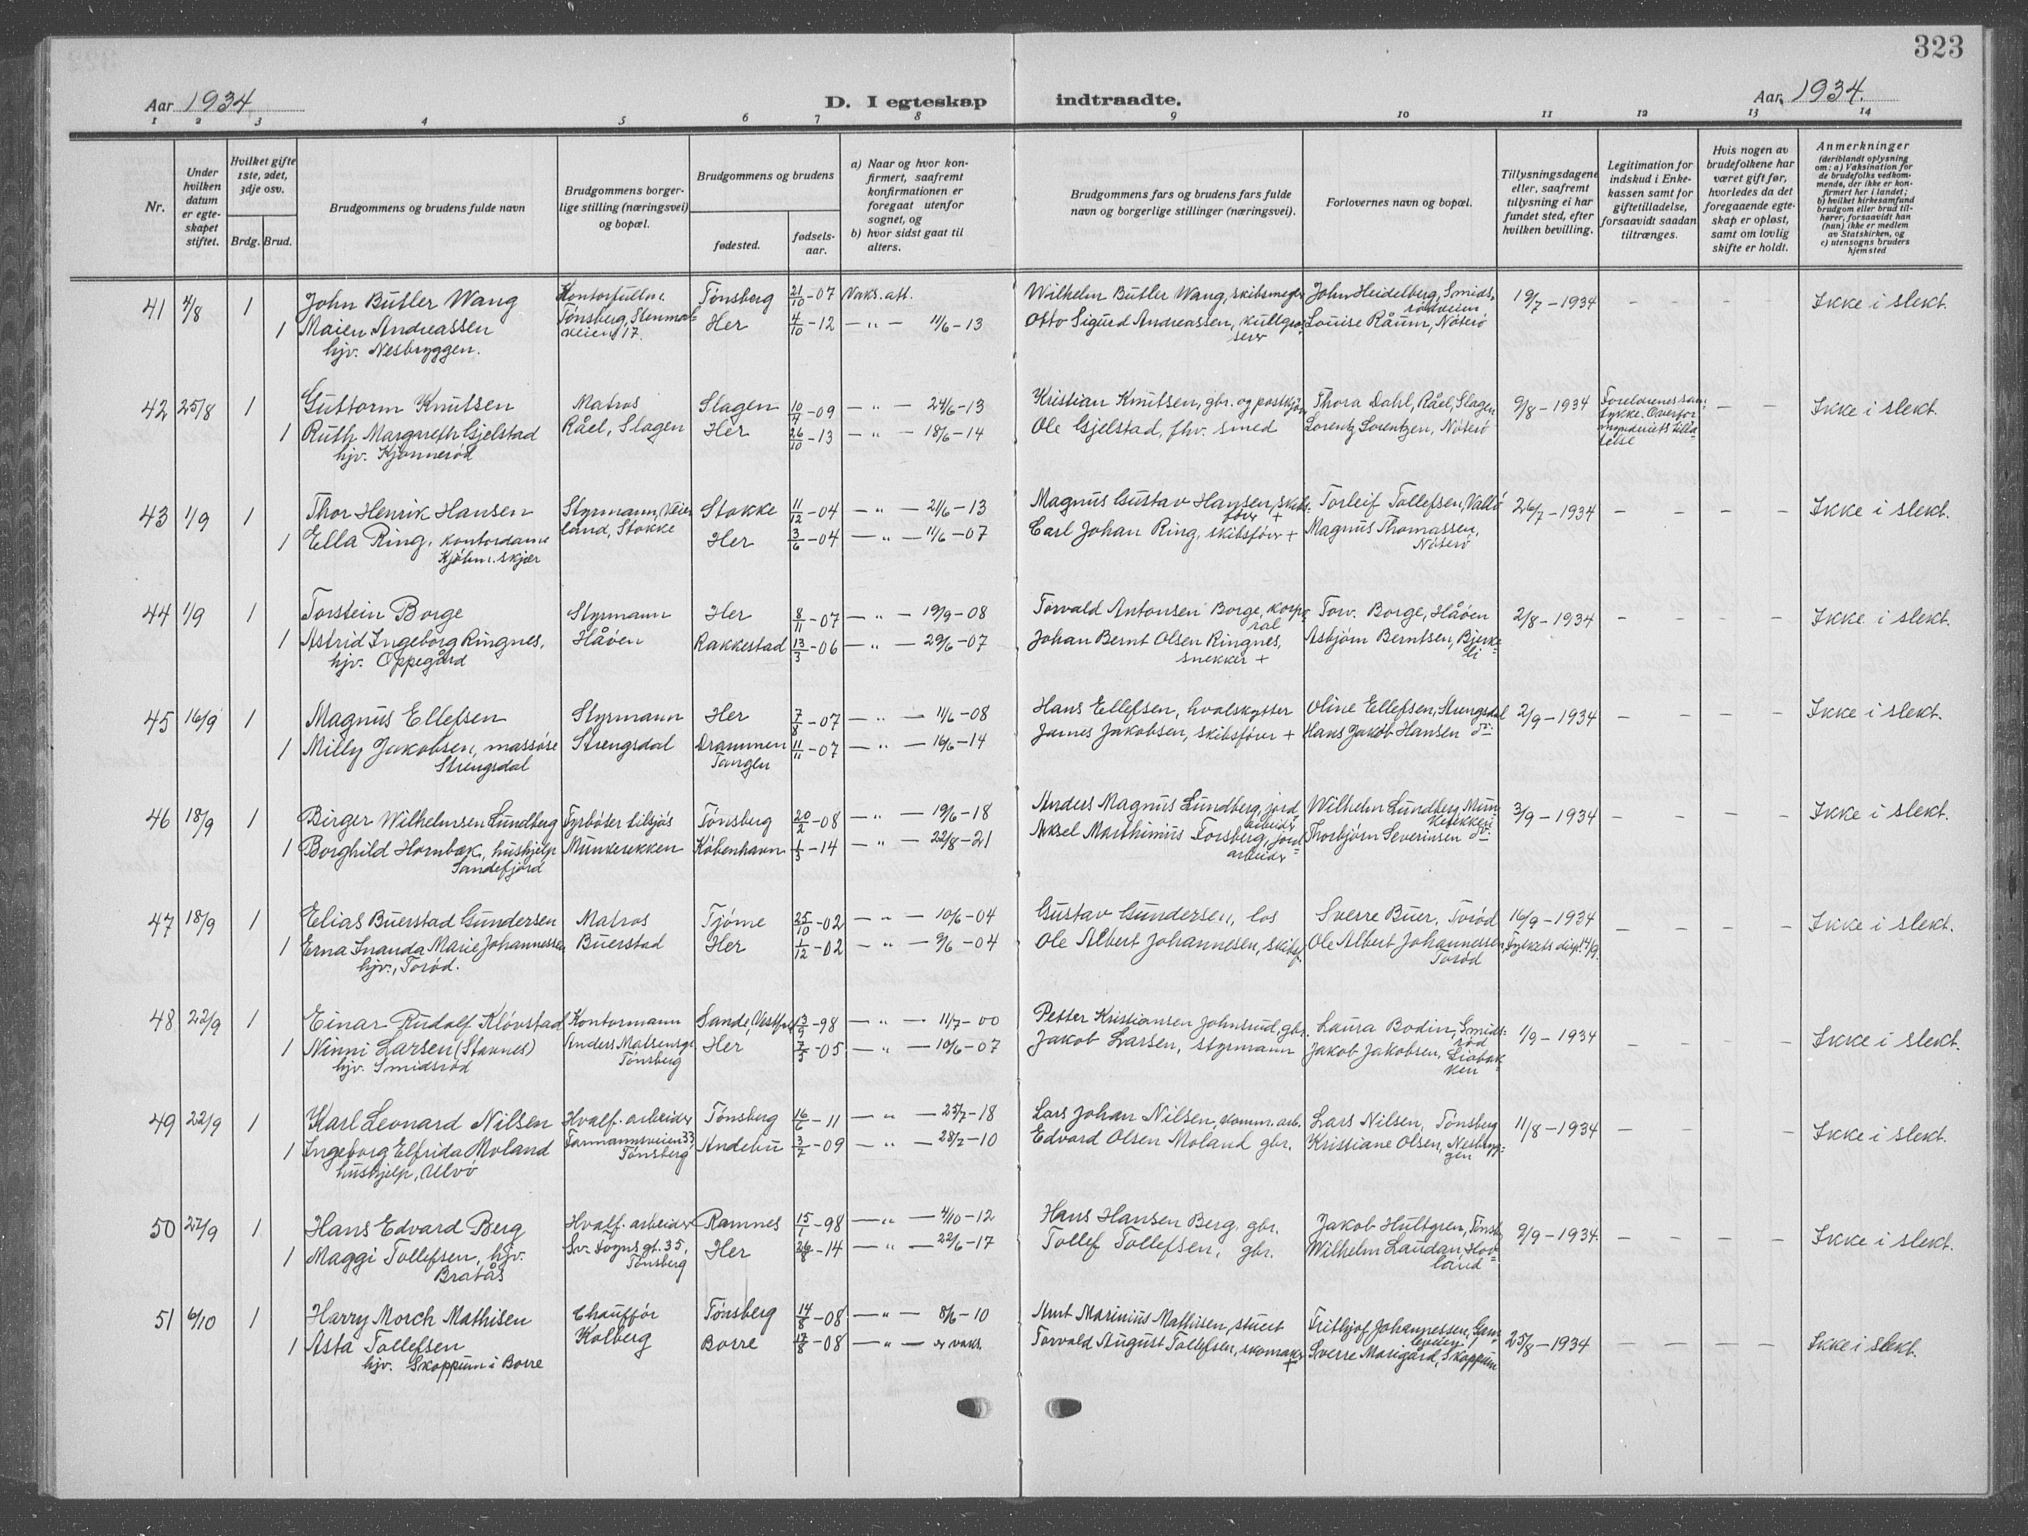 323
Aar 1934
D. I egteskap indtraadte.
Aar 1934.
1 2 3 4 5 6 7 8 9 10 11 12 13 14
Nr.
Under hvilken datum er egteskapet stiftet.
Hvilket gifte 1ste, 2det, 3dje osv.
Brdg. Brud.
Brudgommens og brudens fulde navn
Brudgommens borgerlige stilling (næringsvei) og bopæl.
Brudgommens og brudens
fødested.
fødselsaar.
a) Naar og hvor konfirmert, saafremt konfirmationen er foregaat utenfor sognet, og
b) hvor sidst gaat til alters.
Brudgommens fars og brudens fars fulde navn og borgerlige stillinger (næringsvei).
Forlovernes navn og bopæl.
Tillysningsdagene eller, saafremt tillysning ei har fundet sted, efter hvilken bevilling.
Legitimation for indskud i Enkekassen samt for giftetilladelse, forsaavidt saadan tiltrænges.
Hvis nogen av brudefolkene har været gift før, hvorledes da det foregaaende egteskap er opløst, samt om lovlig skifte er holdt.
Anmerkninger
(deriblandt oplysning om: a) Vaksination for de brudefolks vedkommende, der ikke er konfirmert her i landet; b) hvilket kirkesamfund brudgom eller brud tilhører, forsaavidt han (hun) ikke er medlem av Statskirken, og c) utensogns bruders hjemsted
41 4/8 1 John Butler Wang Kontorfullm. Tønsberg 21/10-07 Vaks. att. Wilhelm Butler Wang, skibsmegler John Heidelberg, Smidsrødveien 19/7-1934 - - - Ikke i slekt.
1 Maien Andreassen Tønsberg, Stenmalveien 17. Her 4/10-12 - " - 11/6-13 Otto Sigurd Andreassen, kullgrosser Louise Råum, Nøterø
hjv. Nesbryggen.
42 25/8 1 Guttorm Knutsen Matros Slagen 10/4-09 - " - 24/6-13 Kristian Knutsen, gbr. og postkjører Thora Dahl, Råel, Slagen 9/8-1934 Foreldrenes samtykke. Overformynderiets tilladelse - - Ikke i slekt.
1 Ruth Margreth Gjelstad Råel, Slagen Her 26/10-13 - " - 18/6-14 Ole Gjelstad, fhv. smed Lorentz Lorentzen, Nøterø
hjv. Kjønnerød
43 1/9 1 Thor Henrik Hansen Styrmann, Stokke 11/12-04 - " - 21/6-13 Magnus Gustav Hansen, skibsfører + Torleif Tollefsen, Vallø 26/7-1934 - - - Ikke i slekt.
1 Ella Ring, kontordame land, Stokke Her 3/6-04 - " - 11/6-07 Carl Johan Ring, skibsfører + Magnus Thomassen, Nøterø
Kjøbm.skjær
44 1/9 1 Torstein Borge Styrmann Her 8/11-07 - " - 19/9-08 Torvald Antonsen Borge, korporal Torv. Borge, Håøen 2/8-1934 - - - Ikke i slekt.
1 Astrid Ingeborg Ringnes, Håøen Rakkestad 13/3-06 - " - 29/6-07 Johan Bernt Olsen Ringnes, snekker + Asbjørn Berntsen, Bjerkeli
hjv. Oppegård
45 16/9 1 Magnus Ellefsen Styrmann Her 7/8-07 - " - 11/6-08 Hans Ellefsen, hvalskytter Oline Ellefsen, Strengsdal 2/9-1934 - - - Ikke i slekt.
1 Milly Jakobsen, massøse Strengsdal Drammen 11/11-07 - " - 16/6-14 James Jakobsen, skibsfører + Hans Jakob Hansen
Strengsdal Tangen
46 18/9 1 Birger Wilhelmsen Lundberg Fyrbøter tilsjøs Tønsberg 20/2-08 - " - 19/6-18 Anders Magnus Lundberg, jordarbeider Wilhelm Lundberg, Munkerekken 3/9-1934 - - - Ikke i slekt.
1 Borghild Hornbæk, hushjelp Munkerekken København 1/3-14 - " - 22/8-21 Aksel Marthinius Forsberg, jordarbeider Thorbjørn Severinsen
Sandefjord
47 18/9 1 Elias Buerstad Gundersen Matros Tjøme 25/10-02 - " - 10/6-04 Gustav Gundersen, los Sverre Buer, Torød 16/9-1934 - - - Ikke i slekt.
1 Erna Inanda Marie Johannessen Buerstad Her 1/12-02 - " - 9/6-04 Ole Albert Johannesen, skibsf. Ole Albert Johannessen Torød Fylkets disp. 14/9.
hjv., Torød.
48 22/9 1 Einar Rudolf Kløvstad Kontormann Sande, Vestfold 13/9-98 - " - 11/7-00 Petter Kristiansen Johnsrud, gbr. Laura Bodin, Smidsrød 1/9-1934 - - - Ikke i slekt.
1 Ninni Larsen (Stavnes) Anders Madsensgt. Tønsberg Her 7/5-05 - " - 10/6-07 Jakob Larsen, styrmann Jakob Jakobsen, Liabakken
hjv. Smidsrød
49 22/9 1 Karl Leonard Nilsen Hvalf.arbeider Tønsberg 16/6-11 - " - 25/7-18 Lars Johan Nilsen, komm.arb. Lars Nilsen, Tønsberg 11/8-1934 - - - Ikke i slekt.
1 Ingeborg Elfrida Moland Farmannsveien 33 Tønsberg Andebu 3/2-09 - " - 28/7-10 Edvard Olsen Moland gbr. Kristiane Olsen, Nesbryggen
hushjelp, Ulvø
50 27/9 1 Hans Edvard Berg Hvalf.arbeider Ramnes 15/1-98 - " - 4/10-12 Hans Hansen Berg, gbr. Jakob Hultgren, Tønsb. 9/9-1934. - - - Ikke i slekt.
1 Maggi Tollefsen, hjv. Sv. Føynsgt. 35, Tønsberg Her 26/8-14 - " - 22/6-17 Tollef Tollefsen, gbr. Wilhelm Laudan, Hovland
Bratås
51 6/10 1 Harry Morch Mathisen Chauffør Tønsberg 14/8-08 - " - 8/6-10 Arnt Marinius Mathisen, stuert Fritjof Johannessen, 25/8-1934 - - - Ikke i slekt.
1 Asta Tollefsen Kolberg Borre 17/8-08 - " - er vaks. Torvald August Tollefsen, skomaker + Sverre Marigård, Skoppum
hjv. Skoppum i Borre